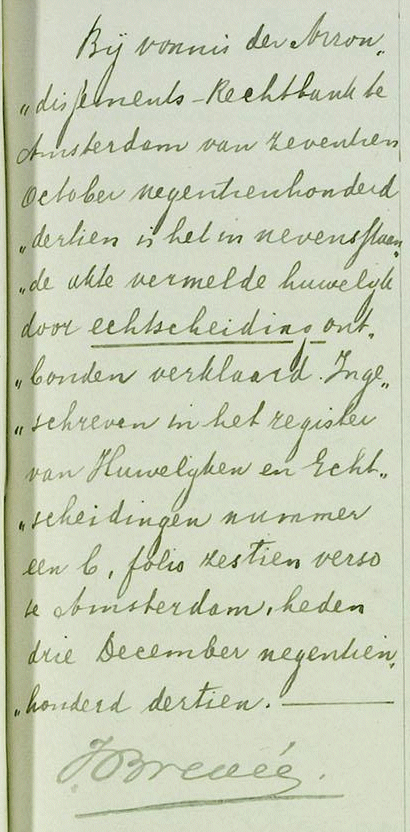 Bij vonnis der Arron„
„dissements-Rechtbank te
Amsterdam van zeventien
October negentienhonderd
„dertien is het in nevensstaan„
„de akte vermelde huwelijk
door echtscheiding ont„
„bonden verklaard. Inge„
„schreven in het register
van Huwelijken en Echt„
„scheidingen nummer
een C, folio zestien verso
te Amsterdam, heden
drie December negentien„
„honderd dertien.